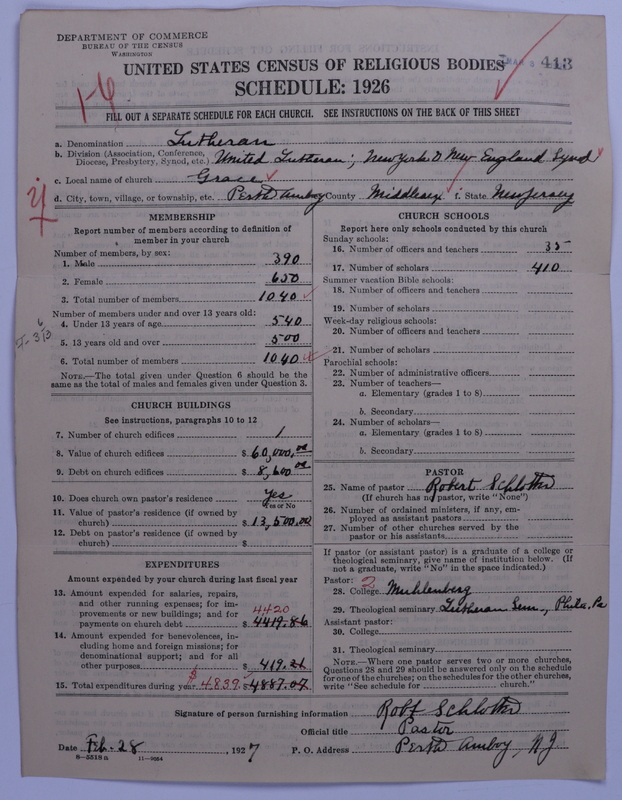 DEPARTMENT OF COMMERCE
BUREAU OF THE CENSUS
WASHINGTON
413
UNITED STATES CENSUS OF RELIGIOUS BODIES
SCHEDULE: 1926
1-6
FILL OUT A SEPARATE SCHEDULE FOR EACH CHURCH. SEE INSTRUCTIONS ON THE BACK OF THIS SHEET
a. Denomination Lutheran
b. Division (Association, Conference, Diocese, Presbytery, Synod, etc.) United Lutheran; New York & New England Synod
c. Local name of church Grace
d. City, town, village, or township, etc. Perth Amboy County Middlesex f. State New Jersey
MEMBERSHIP
Report number of members according to definition of
member in your church
Number of members, by sex:
1. Male 390
2. Female 650
3. Total number of members 1040
Number of members under and over 13 years old:
4. Under 13 years of age 540
5. 13 years old and over 500
6. Total number of members 1040
NOTE.—The total given under Question 6 should be the
same as the total of males and females given under Question 3.
CHURCH BUILDINGS
See instructions, paragraphs 10 to 12
7. Number of church edifices 1
8. Value of church edifices $60,000.00
9. Debt on church edifices $8,600.00
10. Does church own pastor's residence Yes
Yes or No
11. Value of pastor's residence (if owned by
church) $13,500.00
12. Debt on pastor's residence (if owned by
church) $
EXPENDITURES
Amount expended by your church during last fiscal year
13. Amount expended for salaries, repairs,
and other running expenses; for im-
provements or new buildings; and for 4420
payments on church debt $4419.86
14. Amount expended for benevolences, in-
cluding home and foreign missions; for
denominational support; and for all
other purposes $419.21
15. Total expenditures during year $4839. $4887.07
CHURCH SCHOOLS
Report here only schools conducted by this church
Sunday schools:
16. Number of officers and teachers 35
17. Number of scholars 410
Summer vacation Bible schools:
18. Number of officers and teachers
19. Number of scholars
Week-day religious schools:
20. Number of officers and teachers
21. Number of scholars
Parochial schools:
22. Number of administrative officers
23. Number of teachers—
a. Elementary (grades 1 to 8)
b. Secondary
24. Number of scholars—
a. Elementary (grades 1 to 8)
b. Secondary
PASTOR
25. Name of pastor Robert Schlotter
(If church has no pastor, write "None")
26. Number of ordained ministers, if any, em-
ployed as assistant pastors
27. Number of other churches served by the
pastor or his assistants
If pastor (or assistant pastor) is a graduate of a college or
theological seminary, give name of institution below. (If
not a graduate, write "No" in the space indicated.)
Pastor: 2
28. College Muhlenberg
29. Theological seminary Lutheran Sem., Phila, Pa
Assistant pastor:
30. College
31. Theological seminary
NOTE.—Where one pastor serves two or more churches,
Questions 28 and 29 should be answered only on the schedule
for one of the churches; on the schedules for the other churches,
write "See schedule for church."
Signature of person furnishing information Robt Schlotter
Official title Pastor
Date Feb. 28, 1927 P. O. Address Perth Amboy, NJ
8-5318a 11-9054